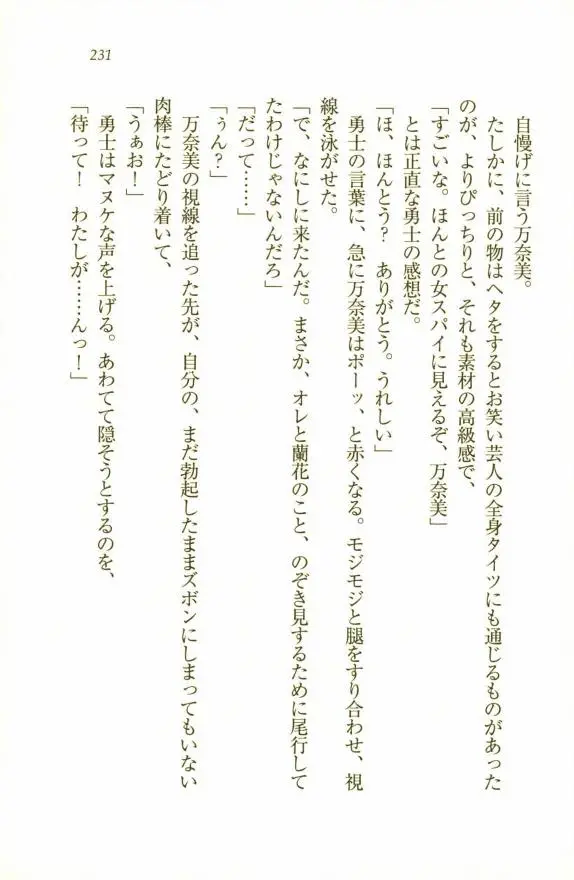 231
自慢げに言う万奈美。
たしかに、前の物はヘタをするとお笑い芸人の全身タイツにも通じるものがあった
のが、よりぴっちりと、それも素材の高級感で、
「すごいな。ほんとの女スパイに見えるぞ、万奈美」
とは正直な勇士の感想だ。
「ほ、ほんとう？　ありがとう。うれしい」
勇士の言葉に、急に万奈美はポーッ、と赤くなる。モジモジと腿をすり合わせ、視
線を泳がせた。
「で、なにしに来たんだ。まさか、オレと蘭花のこと、のぞき見するために尾行して
たわけじゃないんだろ」
「だって……」
「ぅん？」
万奈美の視線を追った先が、自分の、まだ勃起したままズボンにしまってもいない
肉棒にたどり着いて、
「うぁお！」
勇士はマヌケな声を上げる。あわてて隠そうとするのを、
「待って！　わたしが……んっ！」